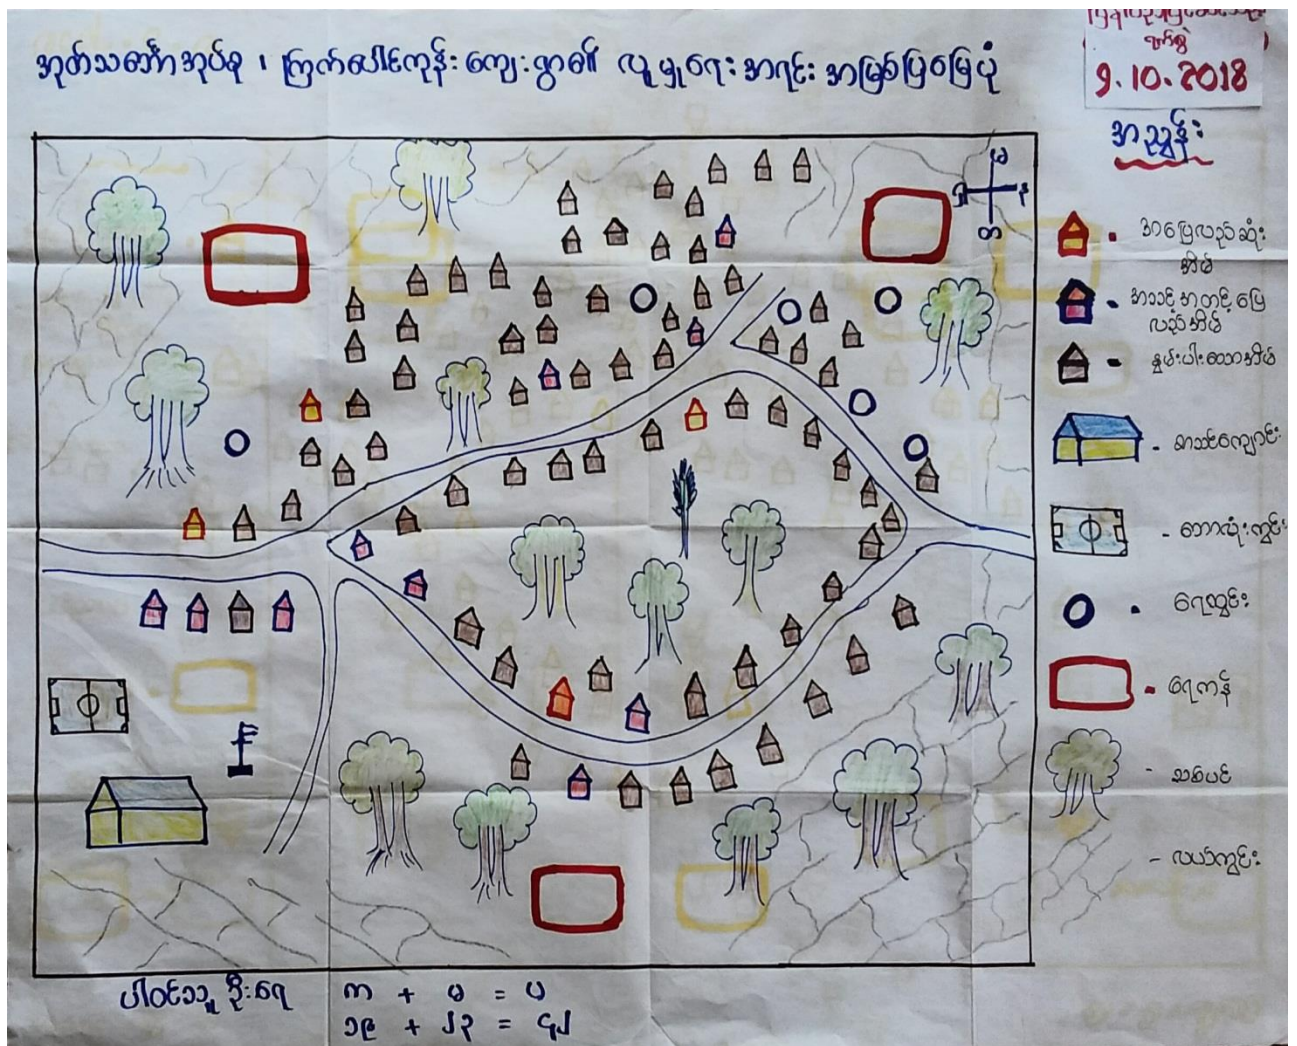 အုတ်သင်္ဘောအုပ်စု ၊ ကြက်ပေါင်ကုန်းကျေးရွာ၏ လူမှုရေးအရင်းအမြစ်ပြမြေပုံ
9.10.2018
အညွှန်း
အပြေလည်ဆုံး
အိမ်
အသင့်အတင့်ပြေ
လည်အိမ်
နွမ်းပါးသောအိမ်
စာသင်ကျောင်း
ဘောလုံးကွင်း
ရေတွင်း
ရေကန်
သစ်ပင်
လယ်ကွင်း
ပါဝင်သူ ဦးရေ
က + မ = ပ